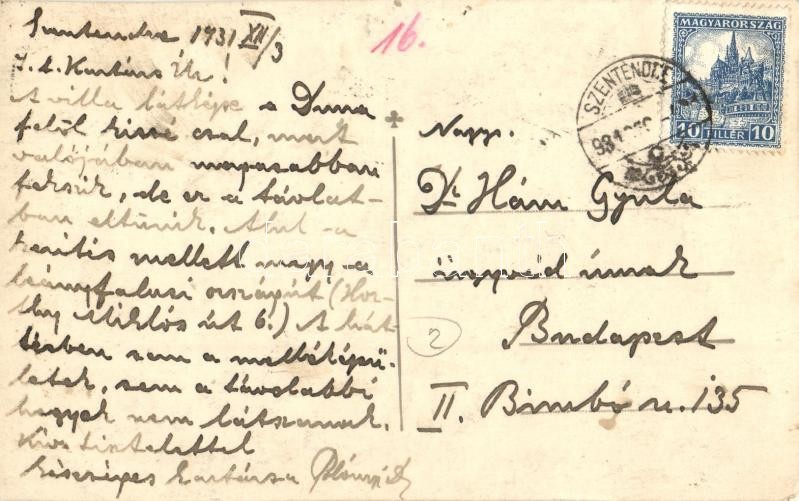 Szentendre 1931 XII/3
I. t. Kartárs Úr!
A villa látképe a Duna
felöl kissé csal, mert
valójában magasabban
fekszik, de ez a távlat-
ban eltünik. Alul a
kerités mellett megy a
leányfalusi országút (Hor-
thy Miklós út 6.) A hát-
térben sem a melléképü-
letek, sem a távolabbi
hegyek nem látszanak.
Kiv. tisztelettel
készséges kartársa
16.
MAGYARORSZÁG
10 FILLÉR 10
SZENTENDRE
931
Nagys.
Dr Hám Gyula
ügyvéd úrnak
2
Budapest
II. Bimbó u. 135